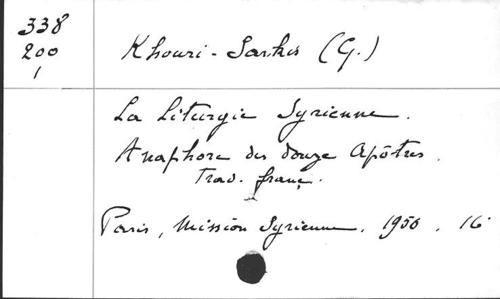 338
200
1
Khouri-Sarkis (G.)
La Liturgie Syrienne.
Anaphore des douze Apôtres.
Trad. franç.
Paris, Mission Syrienne. 1950. 16°